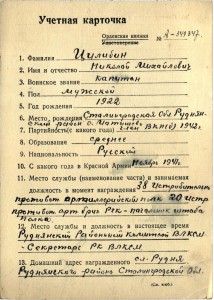 Учетная карточка
Орденская книжка № А-349347.
Удостоверение
1. Фамилия Цилибин
2. Имя и отчество Николай Михайлович
3. Воинское звание капитан
4. Пол Мужской
5. Год рождения 1922
6. Место рождения Сталинградская Обл Руднян-
ский район с.
7. Партийность (с какого года) член ВКП(б) 1942 г.
8. Образование среднее
9. Национальность Русский
10. С какого года в Красной Армии Ноябрь 1941 г.
11. Место службы (наименование части) и занимаемая
должность в момент награждения 38 Истребительн.
противотанк артиллерийский полк 20 истр
против арт бриг РГК - начальник штаба
полка.
12. Место службы и должность в настоящее время
Руднянский Районный комитет ВЛКСМ -
Секретарь РК ВЛКСМ.
13. Домашний адрес награжденного сл. Рудня
Руднянского района Сталинградской Обл.
(См. на об.)